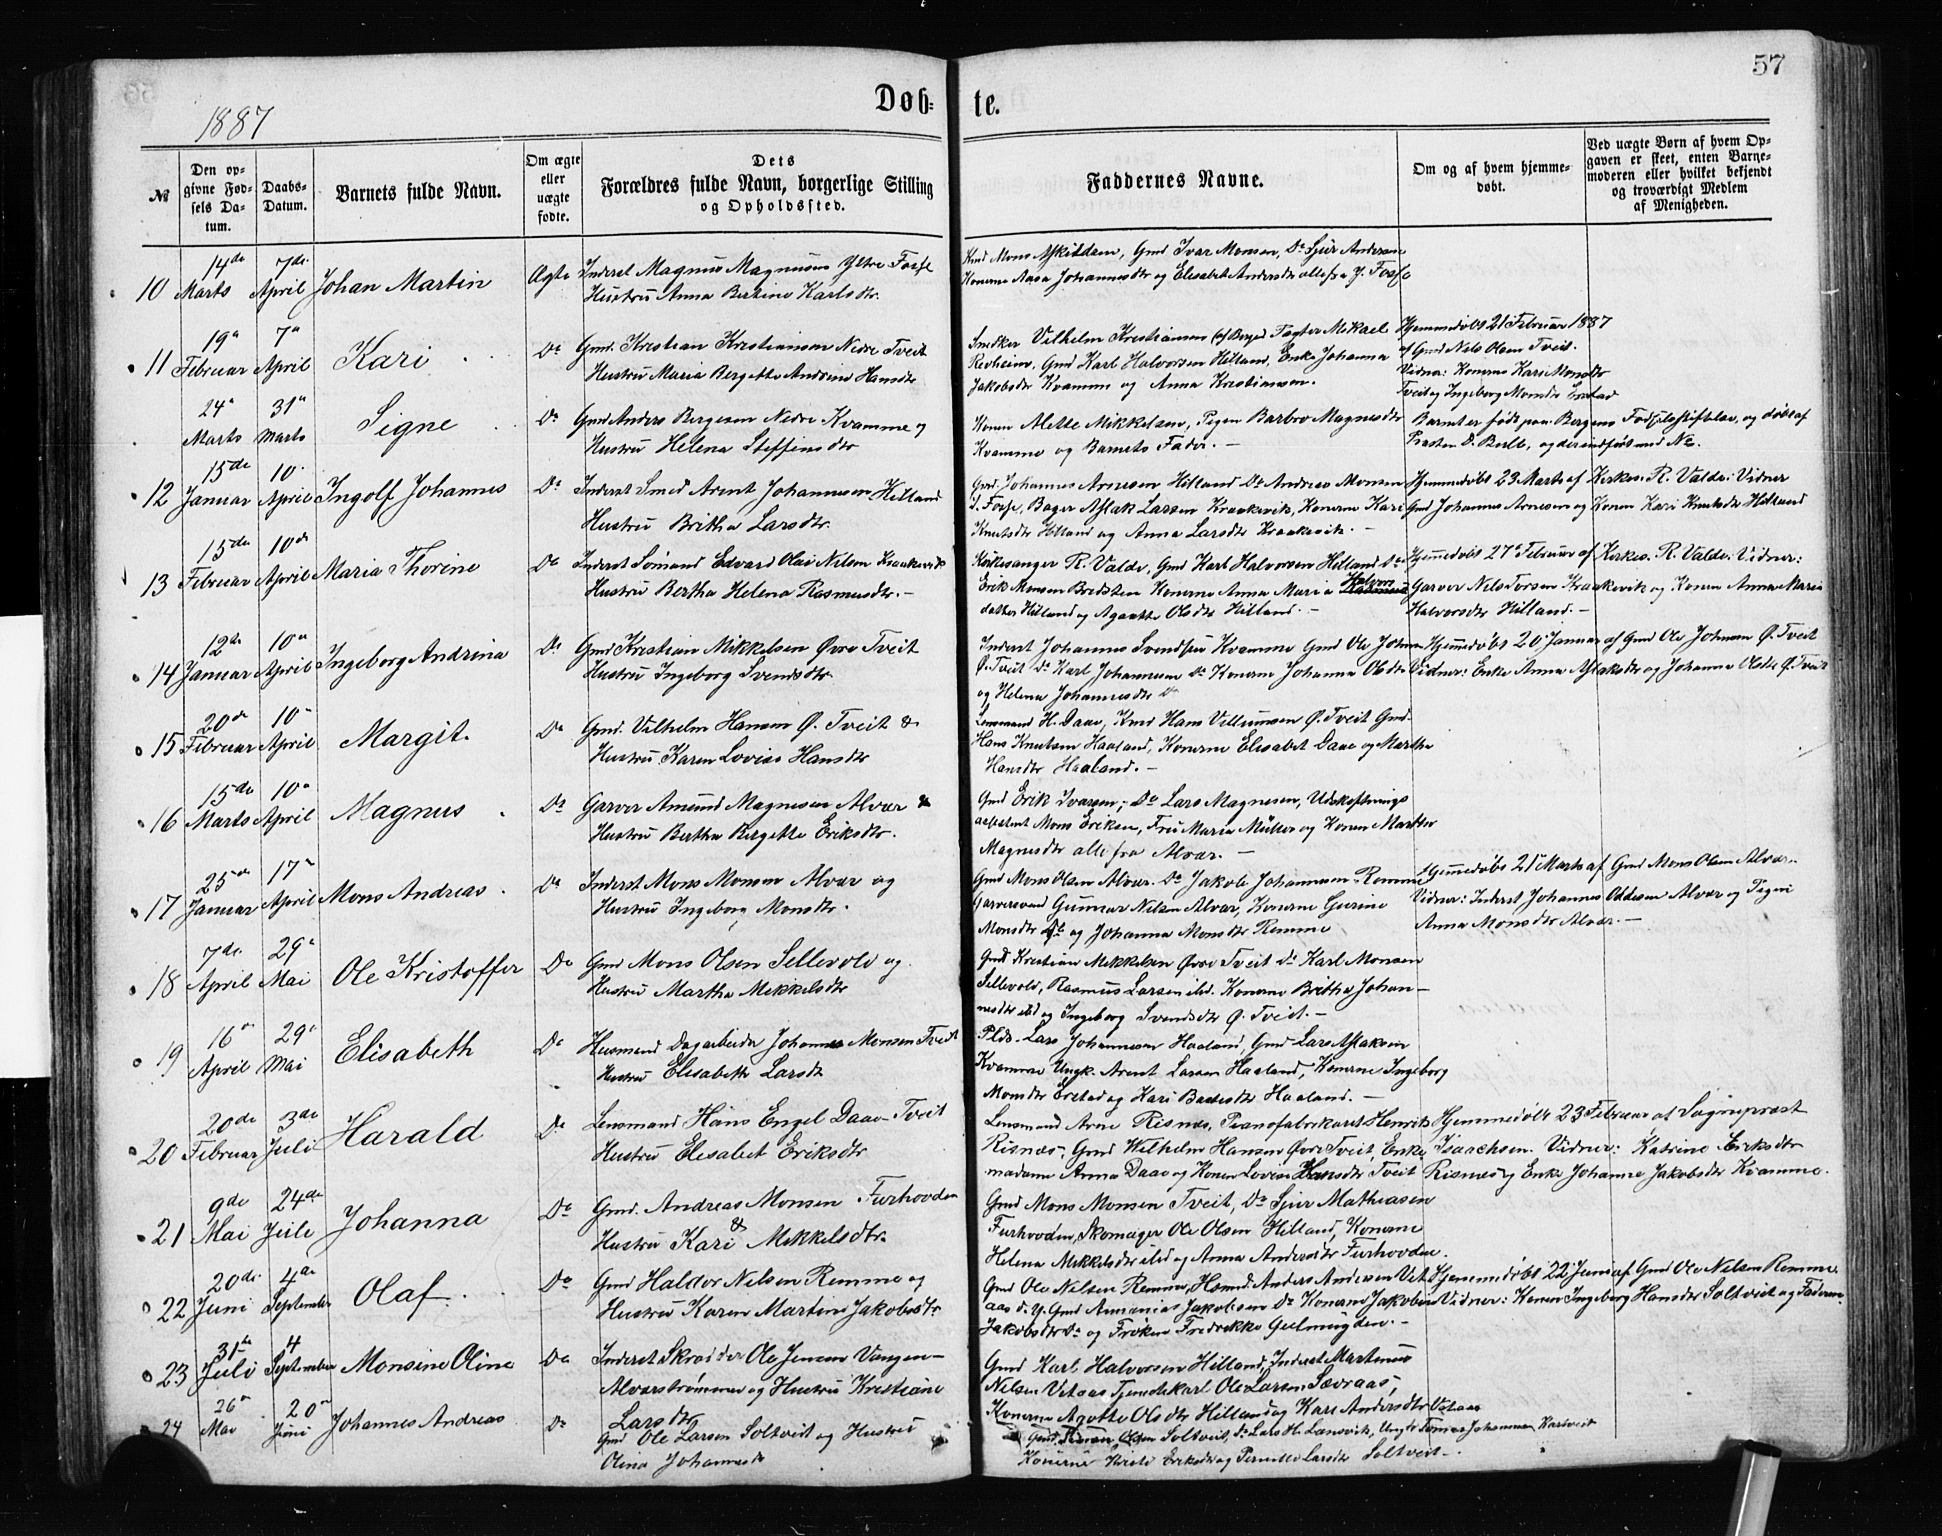 57
1887
Døb-
te.
№
Den op-
givne Fød-
sels Da-
tum.
Daabs-
Datum.
Barnets fulde Navn.
Om ægte
eller
uægte
fødte.
Dets
Forældres fulde Navn, borgerlige Stilling
og Opholdssted.
Faddernes Navne.
Om og af hvem hjemme-
døbt.
Ved uægte Børn af hvem Op-
gaven er skeet, enten Barne-
moderen eller hvilket bekjendt
og troværdigt Medlem
af Menigheden.
10
14de
Marts
7de
April
Johan Martin
Ægte
Inderst Magnus Magnusen Ytre Fosse
Hustru Anna Bertine Karlsdtr.
Mons Askildsen, Gmd Ivar Monsen, Do Sjur Andersen
Konerne Aasa Johannesdtr og Elisabet Andersdtr alle fra Y. Fosse
11
19
Februar
7
April
Kari
Do
Gmd. Kristian Kristiansen Nedre Tveit
Hustru Maria Bergette Andrine Hansdtr
Snedker Vilhelm Kristiansen af Bergen Mikael
Revheim, Gmd Karl Halvorsen Hilland, Enke Johanna
Jakobsdtr Kvamme og Anna Kristiansen.
Hjemmedøbt 21 Februar 1887
af Gmd Nils Olsen Tveit.
Vidner: Konerne Kari Monsdtr
Tveit og Ingeborg Monsdtr Erstad
24
Marts
31
Marts
Signe
Do
Gmd Anders Børgesen Nedre Kvamme og
Hustru Helena Steffensdtr
Konen Alette Mikkelsen, Pigen Barbro Magnesdtr
Kvamme og Barnets Fader.
Barnet er født paa Bergens Fødselsstiftelse, og døbt af
Præsten D. og der indført med No.
12
15de
Januar
10
April
Ingolf Johannes
Do
Inderst Smed Arent Johannesen Hilland
Hustru Britha Larsdtr.
Gmd. Johannes Arnesen Hilland Do Andreas Monsen
I. Fosse, Bager Aslak Larsen Kraakevik, Konerne Kari
Knutsdtr Hilland og Anna Larsdtr Kraakevik.
Hjemmedøbt 23 Marts af Kirkes. R. Valde: Vidner
Gmd Johannes Arnesen og Konen Kari Knutsdtr Hilland
13
15de
Februar
10de
April
Maria Thorine
Do
Inderst Sømand Edvard Olai Nilsen Kraakevik
Hustru Bertha Helena Rasmusdtr.
Kirkesanger R. Valde, Gmd Karl Halvorsen Hilland Do
Erik Monsen Bredsten Konerne Anna Maria Halvors
datter Hilland og Agaathe Olsdtr Hilland.
Hjemmedøbt 27 Februar af Kirkes. R. Valde: Vidner:
Garver Nils Torsen Kraakevik og Konen Anna Maria
Halvorsdtr Hilland.
14
12te
Januar
10
April
Ingeborg Andrina
Do
Gmd Kristian Mikkelsen Øvre Tveit
Hustru Ingeborg Svendsdtr.
Inderst Johannes Svendsen Kvamme Gmd Ole Johnsen
Ø. Tveit Do Karl Johannesen Do Konerne Johanna Olsdtr
og Helena Johannesdtr Do
Hjemmedøbt 20 Januar af Gmd Ole Johnsen Ø. Tveit
Vidner: Enke Anna Aslaksdtr og Johanna Olsdtr Ø. Tveit
15
20de
Februar
10
April
Margit.
Do
Gmd. Vilhelm Hansen Ø. Tveit &
Hustru Karen Lovise Hansdtr
Lensmand H. Daae, Kmd Hans Villumsen Ø. Tveit Gmd.
Hans Knutsen Haaland, Konerne Elisabet Daae og Martha
Hansdtr Haaland.
16
15de
Marts
10
April
Magnus
Do
Garver Amund Magnesen Alver &
Hustru Bertha Bergette Eriksdtr.
Gmd Erik Ivarsen, Do Lars Magnesen, Udskiftnings
assistent Mons Eriksen, Fru Maria Müller og Konen Martha
Magnesdtr alle fra Alver.
17
25de
Januar
17
April
Mons Andreas
Do
Inderst Mons Monsen Alver og
Hustru Ingeborg Monsdtr.
Gmd Mons Olsen Alver. Do Jakob Johannesen Remme
Garversvend Gunnar Nilsen Alver, Konerne Gurine
Monsdtr Do og Johanna Monsdtr Remme
Hjemmedøbt 21 Marts af Gmd Mons Olsen Alver.
Vidner: Inderst Johannes Oddesen Alver og Pigen
Anna Monsdtr Alver.
18
7de
April
29
Mai
Ole Kristoffer
Do
Gmd Mons Olsen Sellevold og
Hustru Martha Mikkelsdtr
Gmd Kristian Mikkelsen Øvre Tveit Do Karl Monsen
Sellevold, Rasmus Larsen ibd. Konerne Britha Johan-
nesdtr ibd og Ingeborg Svendsdtr Ø. Tveit.
19
16
April
29
Mai
Elisabeth
Do
Husmand Dagarbeider Johannes Monsen Tveit
Hustru Elisabeth Larsdtr
Plds. Lars Johannesen Haaland, Gmd Lars Aslaksen
Kvamme Ungk. Arent Larsen Haaland, Konerne Ingeborg
Monsdtr Erstad og Kari Haaland.
20
20de
Februar
3de
Juli
Harald
Do
Lensmand Hans Engel Daae Tveit
Hustru Elisabet Eriksdtr
Lensmand Arne Risnæs, Pianofabrikant Henrik
Risnæs, Gmd Wilhelm Hansen Øvre Tveit, Enke
madame Anna Daae og Konen Lovise Hansdtr Tveit
Hjemmedøbt 23 Februar af Sogneprest
Isaachsen. Vidner: Katrine Eriksdtr
Risnes og Enke Johanne Jakobsdtr Kvamme.
21
9de
Mai
24de
Juli
Johanna
Do
Gmd. Andreas Monsen Furhovden
&
Hustru Kari Mikkelsdtr.
Gmd Mons Monsen Tveit, Do Sjur Mathiasen
Furhovden, Skomager Ole Olsen Hilland, Konerne
Helena Mikkelsdtr ibd og Anna Andersdtr Furhovden.
22
20de
Juni
4de
September
Olaf
Do
Gmd Haldor Nilsen Remme og
Hustru Karen Martine Jakobsdtr.
Gmd Ole Nilsen Remme, Husmd Anders Andersen Vet
aas d. Y. Gmd Ananias Jakobsen Do Konerne Jakobine
Jakobsdtr Do og Frøken Fredrikke
Hjemmedøbt 22 Juni af Gmd Ole Nilsen Remme.
Vidner: Konen Ingeborg Hansdtr Soltveit og Faderen.
23
31te
Juli
4
September
Monsine Oline
Do
Inderst Skrædder Ole Jensen Vangen
Alverstrømmen og Hustru Kristiane
Larsdtr
Gmd Karl Halvorsen Hilland, Inderst Martinus
Nilsen Vetaas Tjenestekarl Ole Larsen Sævraas,
Konerne Agothe Olsdtr Hilland og Kari Andersdtr Vetaas
24
26
Mai
20
Juni
Johannes Andreas
Do
Gmd Ole Larsen Soltveit og Hustru
Olina Johannesdtr
Gmd. Olsen Soltveit, Do Lars H. Lauvvik, Ungk Tomas Johannesen
Konerne Kirsti Eriksdtr og Pernille Larsdtr Soltveit.